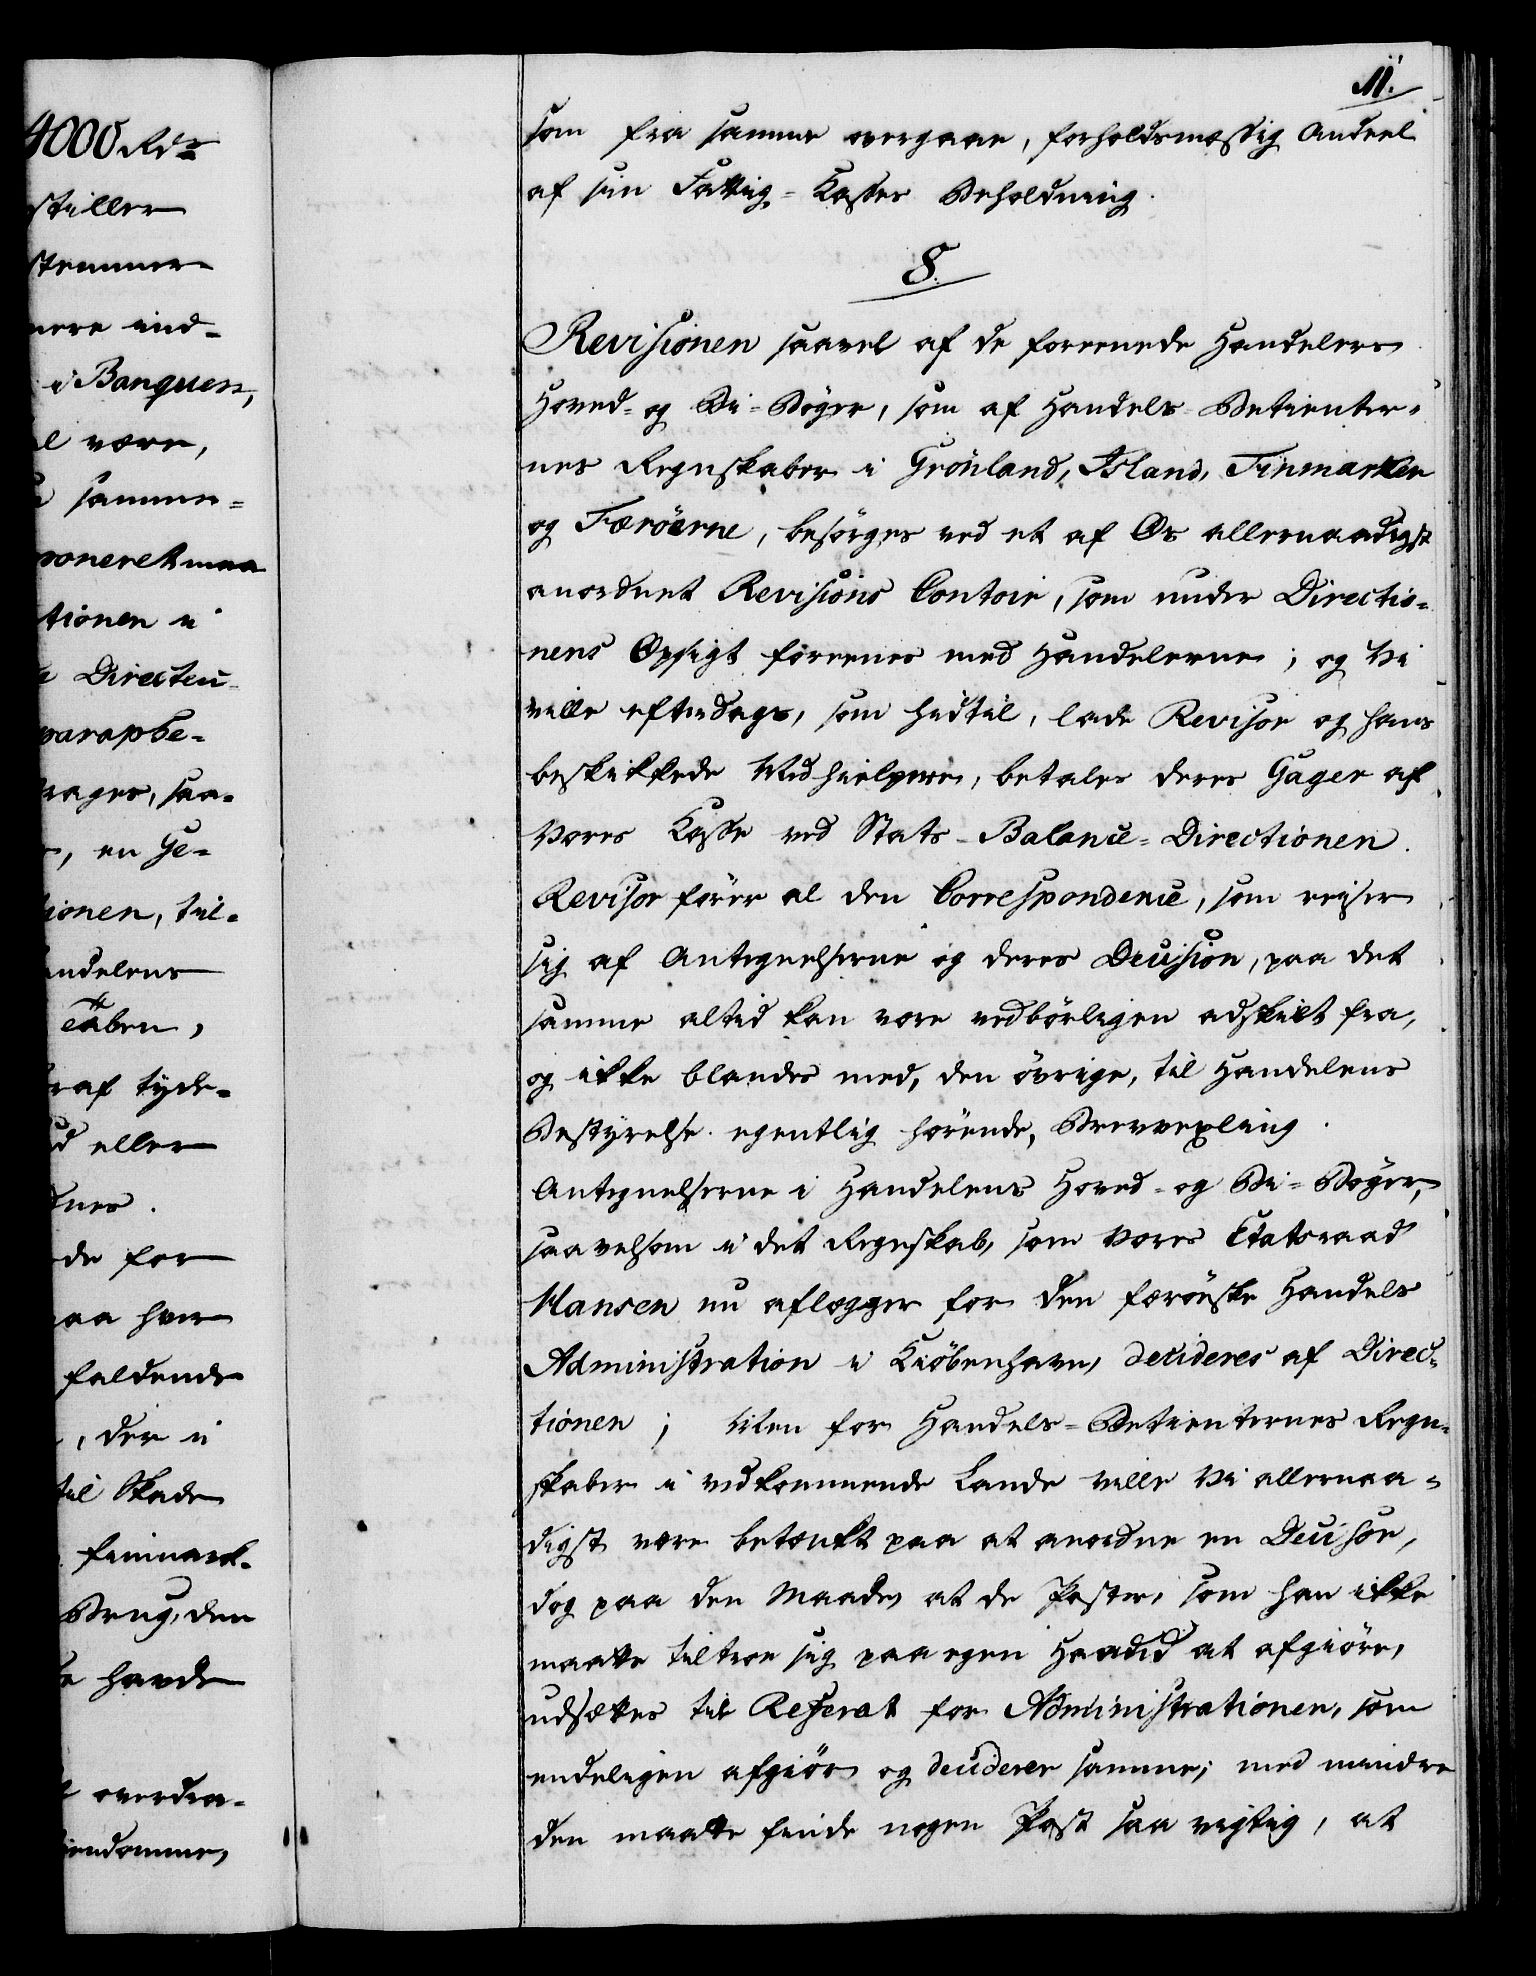 4000 Rdr
stiller
stemmer
mere ind-
i Banquen,
al være,
sammen-
poneret maa
tionen i
Directeu-
parapbe-
drages, saa-
, en Ge-
tionen, til-
andelens
taben,
raf tyde-
ud eller
dnes.
de for
paa hver
faldende
, der i
til Skade
finmark-
Brug, den
havde
overdra-
iendomme,
11.
som fra samme overgaae, forholdsmæssig Andeel
af sin Fattig-Kasses Beholdning.
8.
Revisionen saavel af de foreenede Handelers
Hoved- og Bi-Bøger, som af Handels-Betienter-
nes Regnskaber i Grönland, Island, Finmarken
og Færöerne, besörges ved et af Os allernaadigst
anordnet Revisions Contoir, som under Directio-
nens Opsigt foreenes med Handelerne; og Vi
ville efterdags, som hidtil, lade Revisor og hans
beskikkede Medhielpere, betales deres Gager af
Vores Kasse ved Stats-Balance-Directionen.
Revisor förer al den Correspondence, som reiser
sig af Antegnelserne og deres Decision, paa det
samme altid kan være vedbörligen adskilt fra,
og ikke blandes med, den övrige, til Handelens
Bestyrelse egentlig hörende, Brevvexling.
Antegnelserne i Handelens Hoved- og Bi-Böger,
saavelsom i det Regnskab, som Vores Etatsraad
Hansen nu aflægger for den færöiske Handels
Administration i Kiöbenhavn, decideres af Direc-
tionen; Men for Handels-Betienternes Regn-
skaber i vedkommende Lande ville Vi allernaa-
digst være betænkt paa at anordne en Decisor,
dog paa den Maade, at de Poster, som han ikke
maatte tiltroe sig paa egen Haand at afgiöre,
udsættes til Referat for Administrationen, som
endeligen afgiör og deciderer samme; med mindre
den maatte finde nogen Post saa vigtig, at